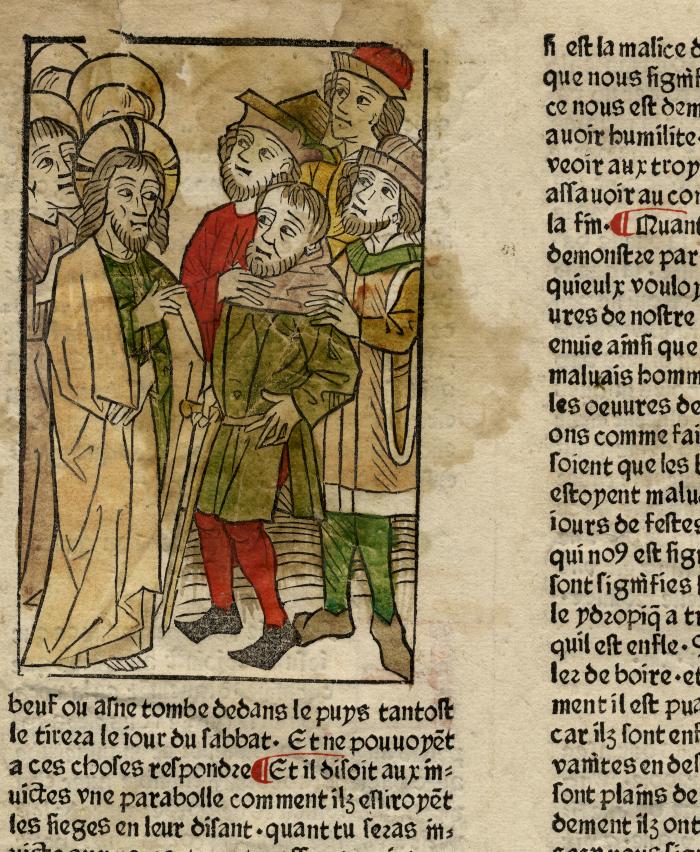 beuf ou asne tombe dedans le puys tantost
le tirera le iour du sabbat. Et ne pouuoyẽt
a ces choses respondre ¶ Et il disoit aux in=
uictes vne parabolle comment ilz esliroyẽt
les sieges en leur disant. quant tu seras in=
si est la malice
que nous
ce nous est
auoir humilite.
veoir aux
assauoir au
la fin. ¶ Quant
demonstre par
quieulx
ures de nostre
enuie ainsi que
maluais
les oeuures
ons comme
soient que les
estoyent
iours de festes
qui noꝯ est
sont signifies
le ydropiq̃ a
quil est enfle.
ler de boire. et
ment il est
car ilz sont
vanites en
sont plains de
dement ilz ont